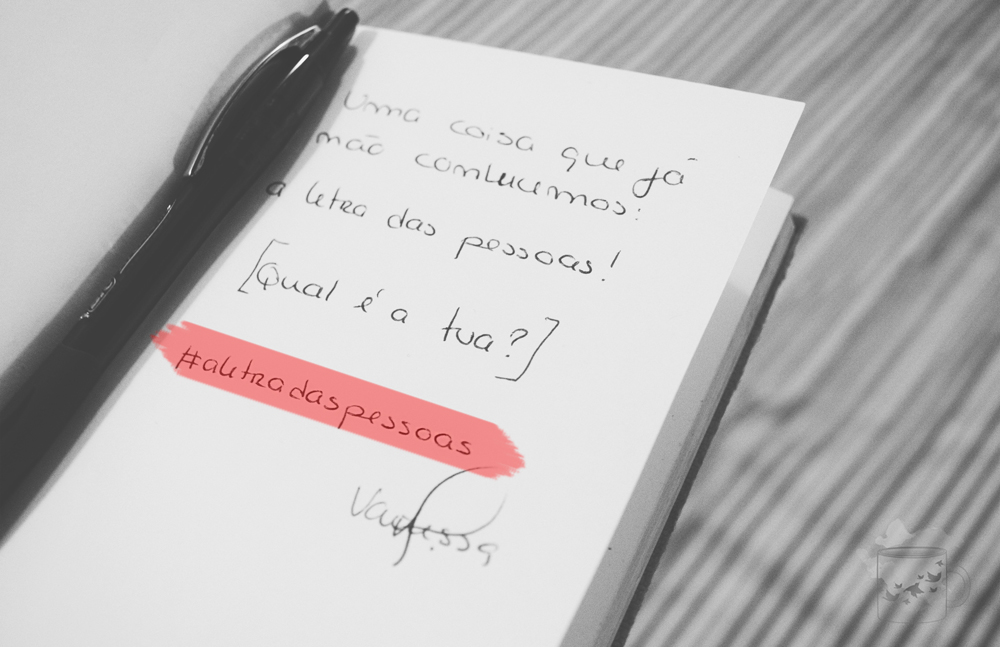 Uma coisa que já
não conhecemos:
a letra das pessoas!
[Qual é a tua?]
#aletradaspessoas
Vanessa